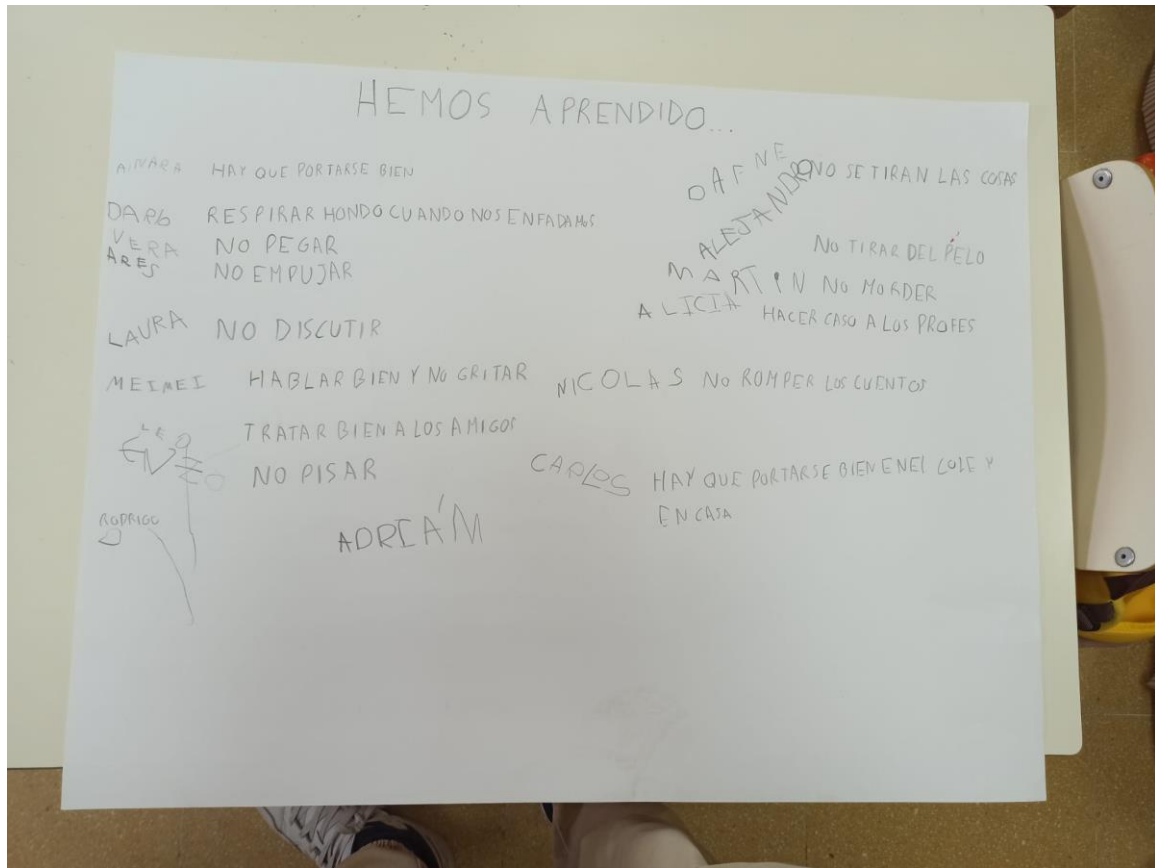 HEMOS APRENDIDO...
AINARA HAY QUE PORTARSE BIEN
RESPIRAR HONDO CUANDO NOS ENFADAMOS
VERA NO PEGAR
ARES NO EMPUJAR
LAURA NO DISCUTIR
MEIMEI HABLAR BIEN Y NO GRITAR
TRATAR BIEN A LOS AMIGOS
NO PISAR
RODRIGO
ADRIÁN
DAFNE NO SE TIRAN LAS COSAS
ALEJANDRO NO TIRAR DEL PELO
MARTIN NO MORDER
ALICIA HACER CASO A LOS PROFES
NICOLAS NO ROMPER LOS CUENTOS
CARLOS HAY QUE PORTARSE BIEN EN EL COLE Y
EN CASA